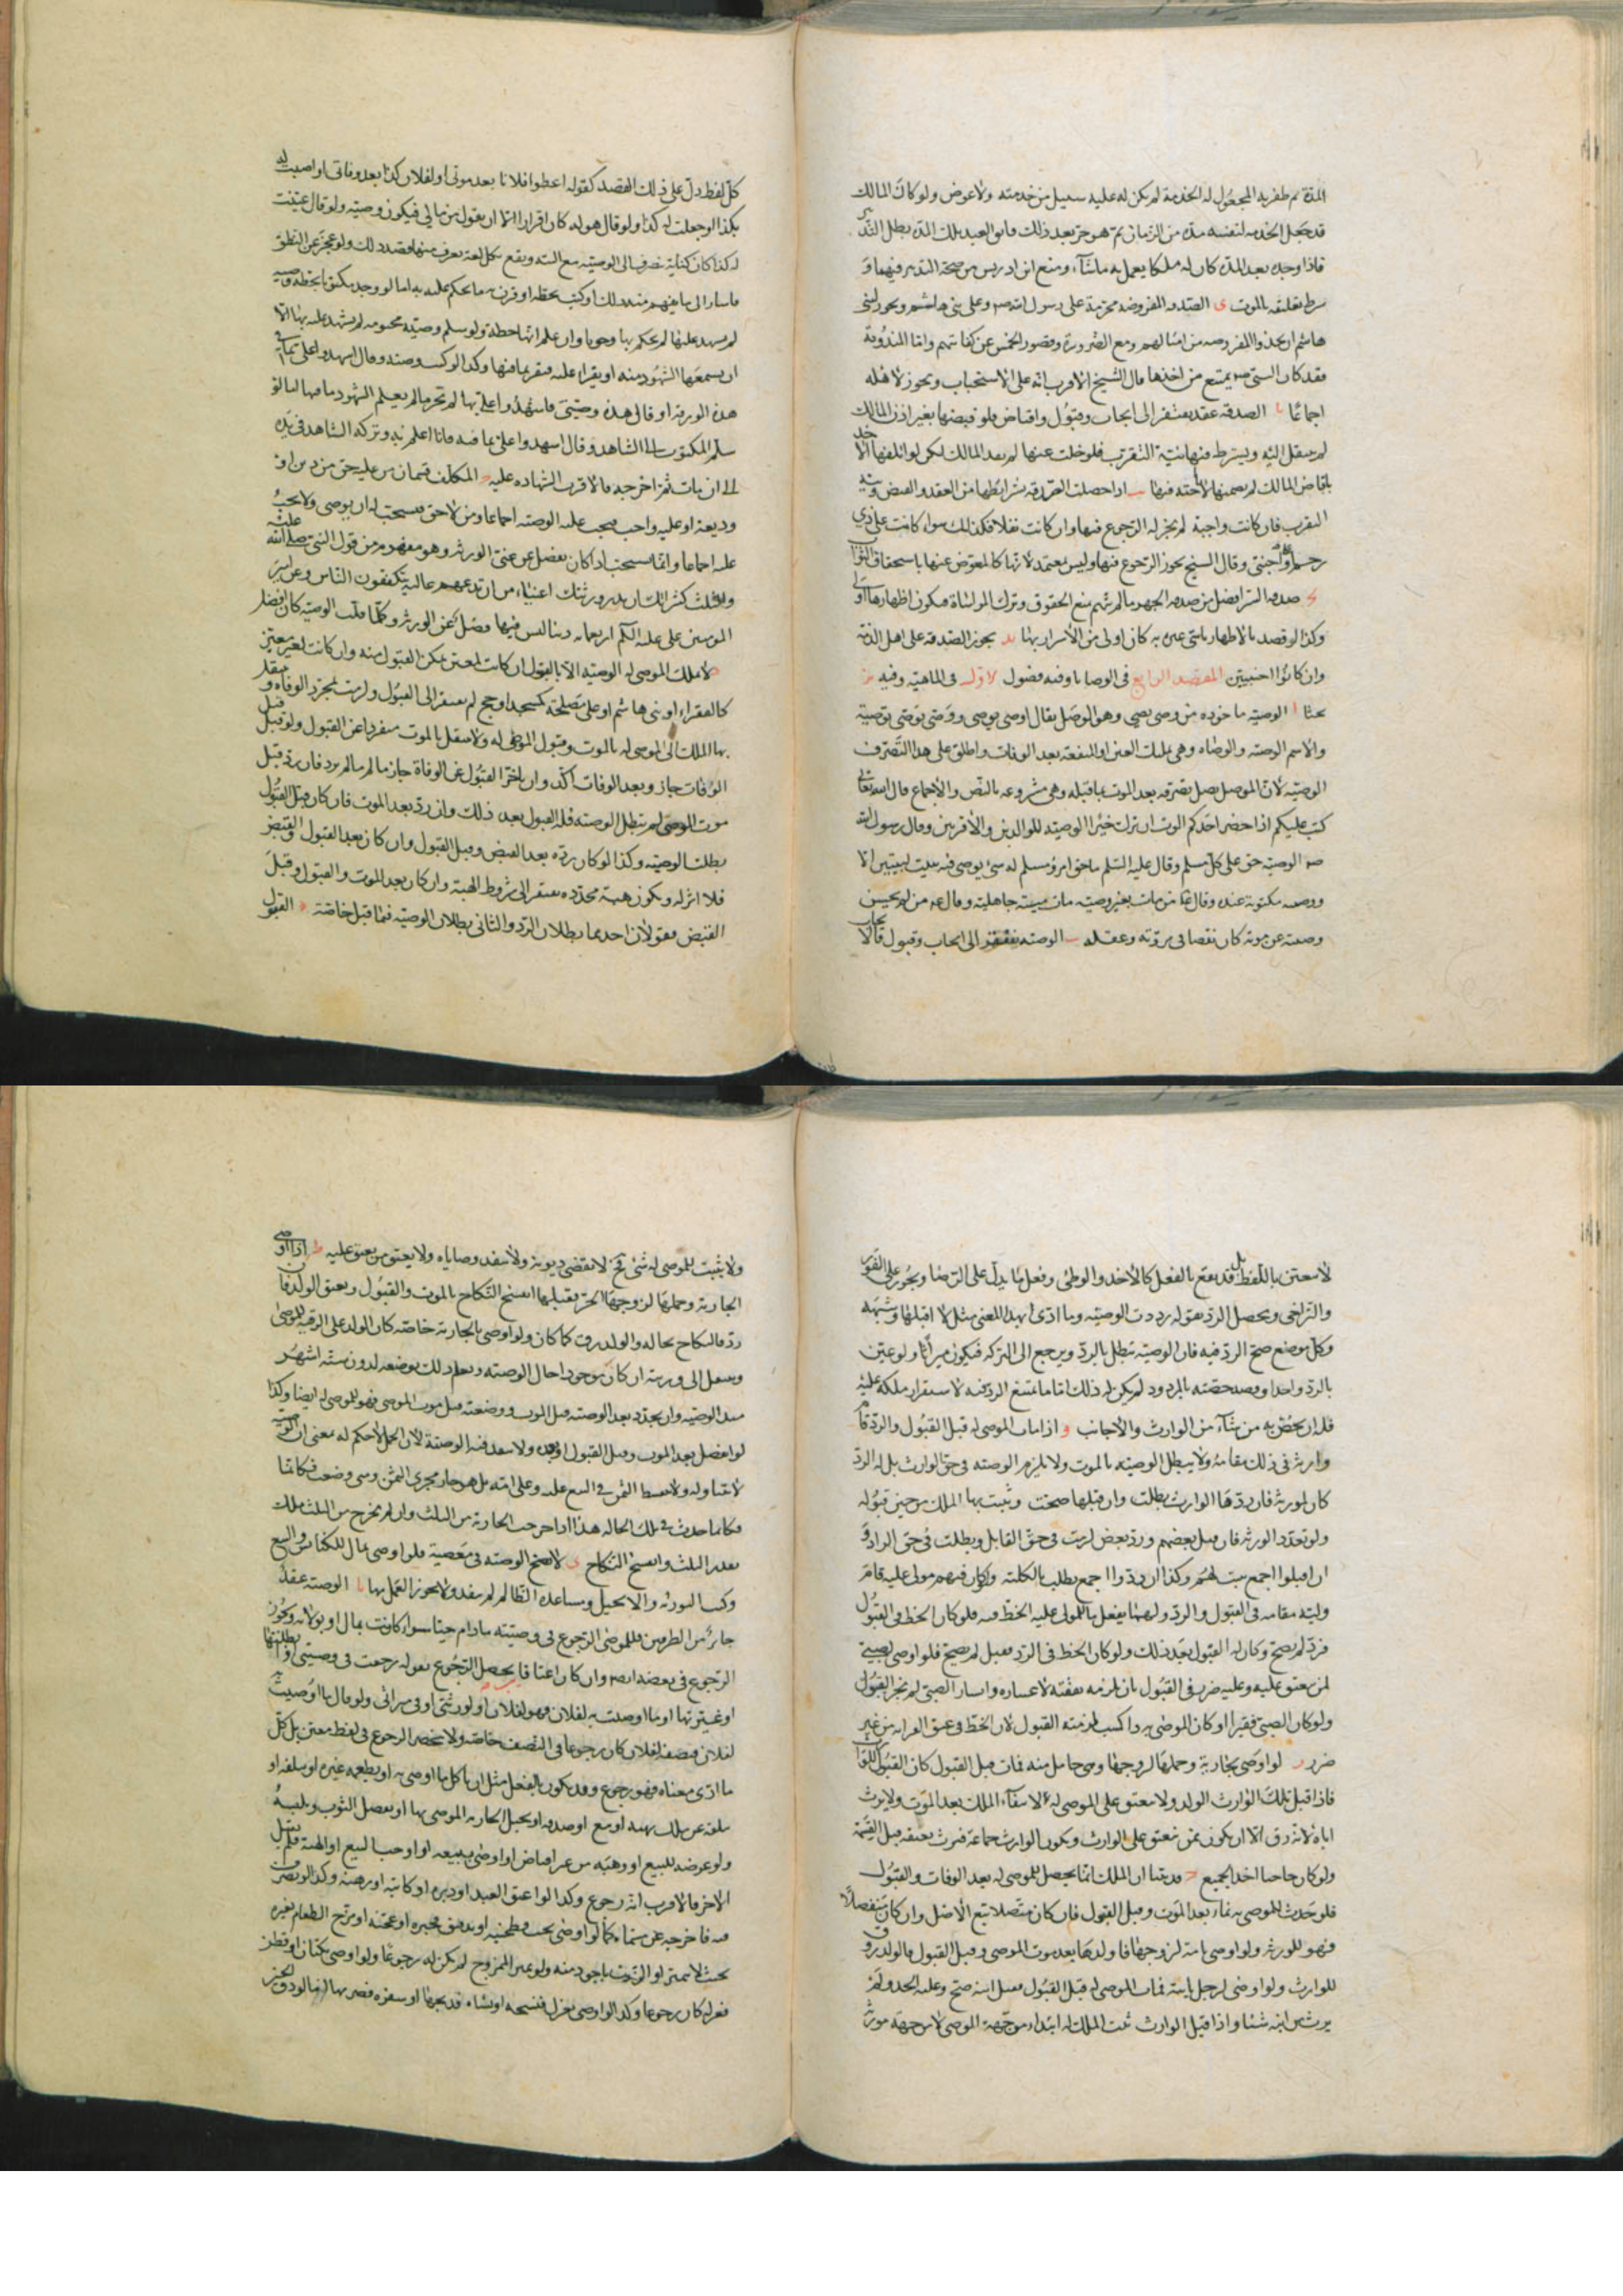 المدة ثم ظفر به المجعول له الخدمة لم يكن له عليه سبيل من خدمته ولا عوض ولو كان المالك
قد جعل الخدمة لنفسه مدة من الزمان ثم هو حر بعد ذلك فابق العبد تلك المدة بطل التدبير
فاذا وجده بعد المدة كان له ملكا يعمل به ما شآء ومنع ابن ادريس من صحة التدبير فيهما و
شرط تعليقه بالموت ى الصدقة المفروضة محرمة على رسول الله صه وعلى بني هاشم ويجوز لبني
هاشم ان يأخذوا المفروضة من امثالهم ومع الضرورة وقصور الخمس عن كفايتهم واما المندوبة
فقد كان النبي صه يمتنع من اخذها قال الشيخ الاقرب انه على الاستحباب وتجوز لاهله
اجماعا يا الصدقة عقد يفتقر الى ايجاب وقبول واقباض فلو قبضها بغير اذن المالك
لم ينتقل اليه ويشترط فيها نية التقرب فلو خلت عنها لم يعد المالك لكن لو اتلفها الاخذ
باقباض المالك لم يضمنها لاخته فيها اذا حصلت الصدقة بشرايطها من العقد والقبض ونية
التقرب فان كانت واجبة لم يجز له الرجوع فيها وان كانت نفلا فكذلك سواء كانت على ذي
رحم او اجنبي وقال الشيخ يجوز الرجوع فيها وليس بمعتمد لانها كالمعوض عنها باستحقاق الثواب
صدقة السر افضل من صدقة الجهر ما لم يتهم بمنع الحقوق وترك المواساة فيكون اظهارها اولى
وكذا لو قصد بالاظهار تاسي غيره به كان اولى من الاسرار بها يد يجوز الصدقة على اهل الذمة
وان كانوا اجنبيين المقصد الرابع في الوصايا وفيه فصول الاول في الماهية وفيه
بحثا ا الوصية ماخوذه من وصى يصي وهو الوصل يقال اوصى يوصي ووصى يوصي توصية
والاسم الوصية والوصاه وهي تمليك العين او المنفعة بعد الوفات واطلق على هذا التصرف
الوصية لان الموصي يصل تصرفه بعد الموت بما قبله وهي مشروعه بالنص والاجماع قال الله تعالى
كتب عليكم اذا حضر احدكم الموت ان ترك خيرا الوصية للوالدين والاقربين وقال رسول الله
صه الوصية حق على كل مسلم وقال عليه السلم ما حق امرؤ مسلم له شئ يوصي فيه يبيت ليلتين الا
ووصيته مكتوبة عنده وقال من مات بغير وصية مات ميتة جاهلية وقال عه من لم يحسن
وصيته عن موته كان نقصا في مروته وعقله الوصية يفتقر الى ايجاب وقبول فالايجاب
كل لفظ دل على ذلك القصد كقوله اعطوا فلانا بعد موتي او لفلان كذا بعد وفاتي او اوصيت له
بكذا او جعلت له كذا ولو قال هو له كان اقرارا الا ان يقول من مالي فيكون وصية ولو قال عينت
له كذا كان كناية ينصرف الى الوصية مع النية ويقع بكل لغة يعرف منها قصد ذلك ولو عجز عن النطق
فاشار الى ما يفهم منه ذلك او كتب بخطه او قرن به ما يحكم عليه به اما لو وجد مكتوبا بخطه وصية
لم يشهد عليها لم يحكم بها وجوبا وان علم انها خطه ولو سلم وصية مختومة لم يشهد عليه بها الا
ان يسمعها الشهود منه او يقراء عليه فيقر بما فيها وكذا لو كتب وصيته وقال اشهدوا على بما في
هذه الورقة او قال هذه وصيتي فاشهدوا على بها لم تجز ما لم يعلم الشهود ما فيها اما لو
سلم المكتوب الى الشاهد وقال اشهدوا على بما فيه فانا اعلم به وتركه الشاهد في يده
الى ان مات ثم اخرجه فالاقرب الشهاده عليه د المكلف قسمان من عليه حق من دين او
وديعة او عليه واجب فيجب عليه الوصية اجماعا ومن لا حق فيستحب له ان يوصي ولا يجب
عليه اجماعا وانما يستحب اذا كان يفضل عن غنى الورثة وهو مفهوم من قول النبي صلى الله عليه
والثلث كثير انك ان تدع ورثتك اغنياء من ان تدعهم عالة يتكففون الناس وعن امير
المومنين علي عليه السلم اربعمايه دينار ليس فيها فضل عن الورثة وكلما قلت الوصية كان افضل
ه لا يملك الموصى له الوصية الا بالقبول ان كانت لمعين يمكن القبول منه وان كانت لغير معين
كالفقراء او بني هاشم او على مصلحة كمسجد او حج لم يفتقر الى القبول ولزمت بمجرد الوفاة و ينتقل
بها الملك الى الموصى له بالموت وقبول الموصى له ولا ينتقل بالموت منفردا عن القبول ولو قبل قبل
الوفات جاز وبعد الوفات اكد وان تاخر القبول عن الوفاة جاز ما لم يرد فان رد قبل
موت الموصي لم تبطل الوصية فله القبول بعد ذلك وان رد بعد الموت فان كان قبل القبول
بطلت الوصية وكذا لو كان رده بعد القبض وقبل القبول وان كان بعد القبول والقبض
فلا اثر له ويكون هبة مجددة يفتقر الى شروط الهبة وان كان بعد الموت والقبول وقبل
القبض فقولان احدهما بطلان الرد والثاني بطلان الوصية فيما قبل خاصة ه القبول
لا يتعين باللفظ بل قد يقع بالفعل كالاخذ والوطي وفعل ما يدل على الرضا ويجوز على الفور
والتراخي ويحصل الرد بقوله رددت الوصية وما ادى هذا المعنى مثل لا اقبلها وشبهه
وكل موضع صح الرد فيه فان الوصية تبطل بالرد ويرجع الى التركه فيكون ميراثا ولو عين
بالرد واحدا وقصد تخصيصه بالمردود لم يكن له ذلك اما ما يمتنع الرد فيه لاستقرار ملكه عليه
فله ان يخص به من شآء من الوارث والاجانب و اذا مات الموصى له قبل القبول والرد قام
وارثه في ذلك مقامه ولا يبطل الوصية بالموت ولا تلزم الوصية في حق الوارث بل له الرد
كان لمورثه فان ردها الوارث بطلت وان قبلها صحت وثبت بها الملك من حين قبوله
ولو تعدد الورثه فان قبل بعضهم ورد بعض لزمت في حق القابل وبطلت في حق الراد و
ان اقبلوا اجمع ثبت لهم وكذا ان ردوا اجمع بطلت بالكلية ولو كان فيهم مولى عليه قام
وليه مقامه في القبول والرد ولهما يفعل ما للمولى عليه الحظ فيه فلو كان الحظ في القبول
فرد لم يصح وكان له القبول بعد ذلك ولو كان الحظ في الرد فقبل لم يصح فلو اوصي لصبي
لمن يعتق عليه وعليه ضرر في القبول بان يلزمه نفقته لاعساره وايسار الصبي لم يجز القبول
ولو كان الصبي فقيرا او كان الموصى به ذا كسب لزمته القبول لان الحظ في عتق القرابه من غير
ضرر ز لو اوصى بجارية وحملها لزوجها وهي حامل منه فمات قبل القبول كان القبول للوارث
فاذا قبل تملك الوارث الولد ولا يعتق على الموصى له لانتفآء الملك بعد الموت ولا يرث
اباه لانه رق الا ان يكون ممن ينعتق على الوارث ويكون الوارث جماعة فيرث بعتقه قبل القسمة
ولو كان حاجبا اخذ الجميع ح قد بينا ان الملك انما يحصل للموصى له بعد الوفات والقبول
فلو حدث للموصى به نماء بعد الموت وقبل القبول فان كان متصلا تبع الاصل وان كان منفصلا
فهو للورثة ولو اوصى بامة لزوجها فاولدها بعد موت الموصي وقبل القبول فالولد رق
للوارث ولو اوصى لرجل بابنه فمات الموصى له قبل القبول فقبل ابنه صح وعليه الجد ولم
يرث من ابنه شيئا واذا قبل الوارث ثبت الملك له ابتداء من جهة الموصي لا من جهة مورثه
ولا يثبت للموصى له شئ فح لا تقضى ديونه ولا تنفذ وصاياه ولا يعتق من يعتق عليه ط اذا اوصى
الجارية وحملها لزوجها الحر فقبلها انفسخ النكاح بالموت والقبول ويعتق الولد فان
رد فالنكاح بحاله والولد رق كما كان ولو اوصى بالجارية خاصة كان الولد على الرقية للموصي
وينتقل الى ورثته ان كان موجودا حال الوصية ويعلم ذلك بوضعه لدون ستة اشهر
منذ الوصية وان تجدد بعد الوصية قبل الموت ووضعته قبل موت الموصي فهو للموصي له ايضا وكذا
لو انفصل بعد الموت وقبل القبول ولا تنفذ فيه الوصية لان الحمل لا حكم له بمعنى ان الوصية
لا تتناوله ولا يقسط الثمن في البيع عليه وعلى امه بل هو جار مجرى السمن ومتى وضعت فكانما
فكانما حدث في تلك الحالة هذا اذا خرجت الجارية من الثلث وان لم يخرج من الثلث ملك
بقدر الثلث وانفسخ النكاح ى لا تصح الوصية في معصية فلو اوصى بمال للكنائس والبيع
وكتب التورية والانجيل ومساعدة الظالم لم ينفذ ولا يجوز العمل بها يا الوصية عقد
جائز من الطرفين فللموصي الرجوع في وصيته ما دام حيا سواء كانت بمال او بولاية ويجوز
الرجوع في بعضه ايضا وان كان اعتاقا يحصل الرجوع بقوله رجعت في وصيتي او ابطلتها
او غيرتها او ما اوصيت به لفلان فهو لفلان او لورثتي او في ميراثي ولو قال ما اوصيت به
لفلان فنصفه لفلان كان رجوعا في النصف خاصة ولا ينحصر الرجوع في لفظ معين بل كل
ما ادى معناه فهو رجوع وقد يكون بالفعل مثل ان ياكل ما اوصى به او يطعمه غيره او يتلفه او
ينقله عن ملكه بهبة او بيع او صدقة او يحبل الجارية الموصى بها او يفصل الثوب ويلبسه
ولو عرضه للبيع او وهبه من غير اقباض او اوصى ببيعه او اوجب البيع او الهبة فلم يقبل
الاخر فالاقرب انه رجوع وكذا لو اعتق العبد او دبره او كاتبه او رهنه وكذا لو تصرف
فيه فاخرجه عن مسماه كما لو اوصى بحب فطحنه او بدقيق فخبزه او عجنه او مزج الطعام بغيره
بحيث لا يتميز او الزيت باجود منه ولو تميز الممزوج لم يكن له رجوعا ولو اوصى بكتان او قطن
فغزله كان رجوعا وكذا لو اوصى بغزل فنسجه او بشاة فذبحها او بنقره فضربها اما لو دق الخبز